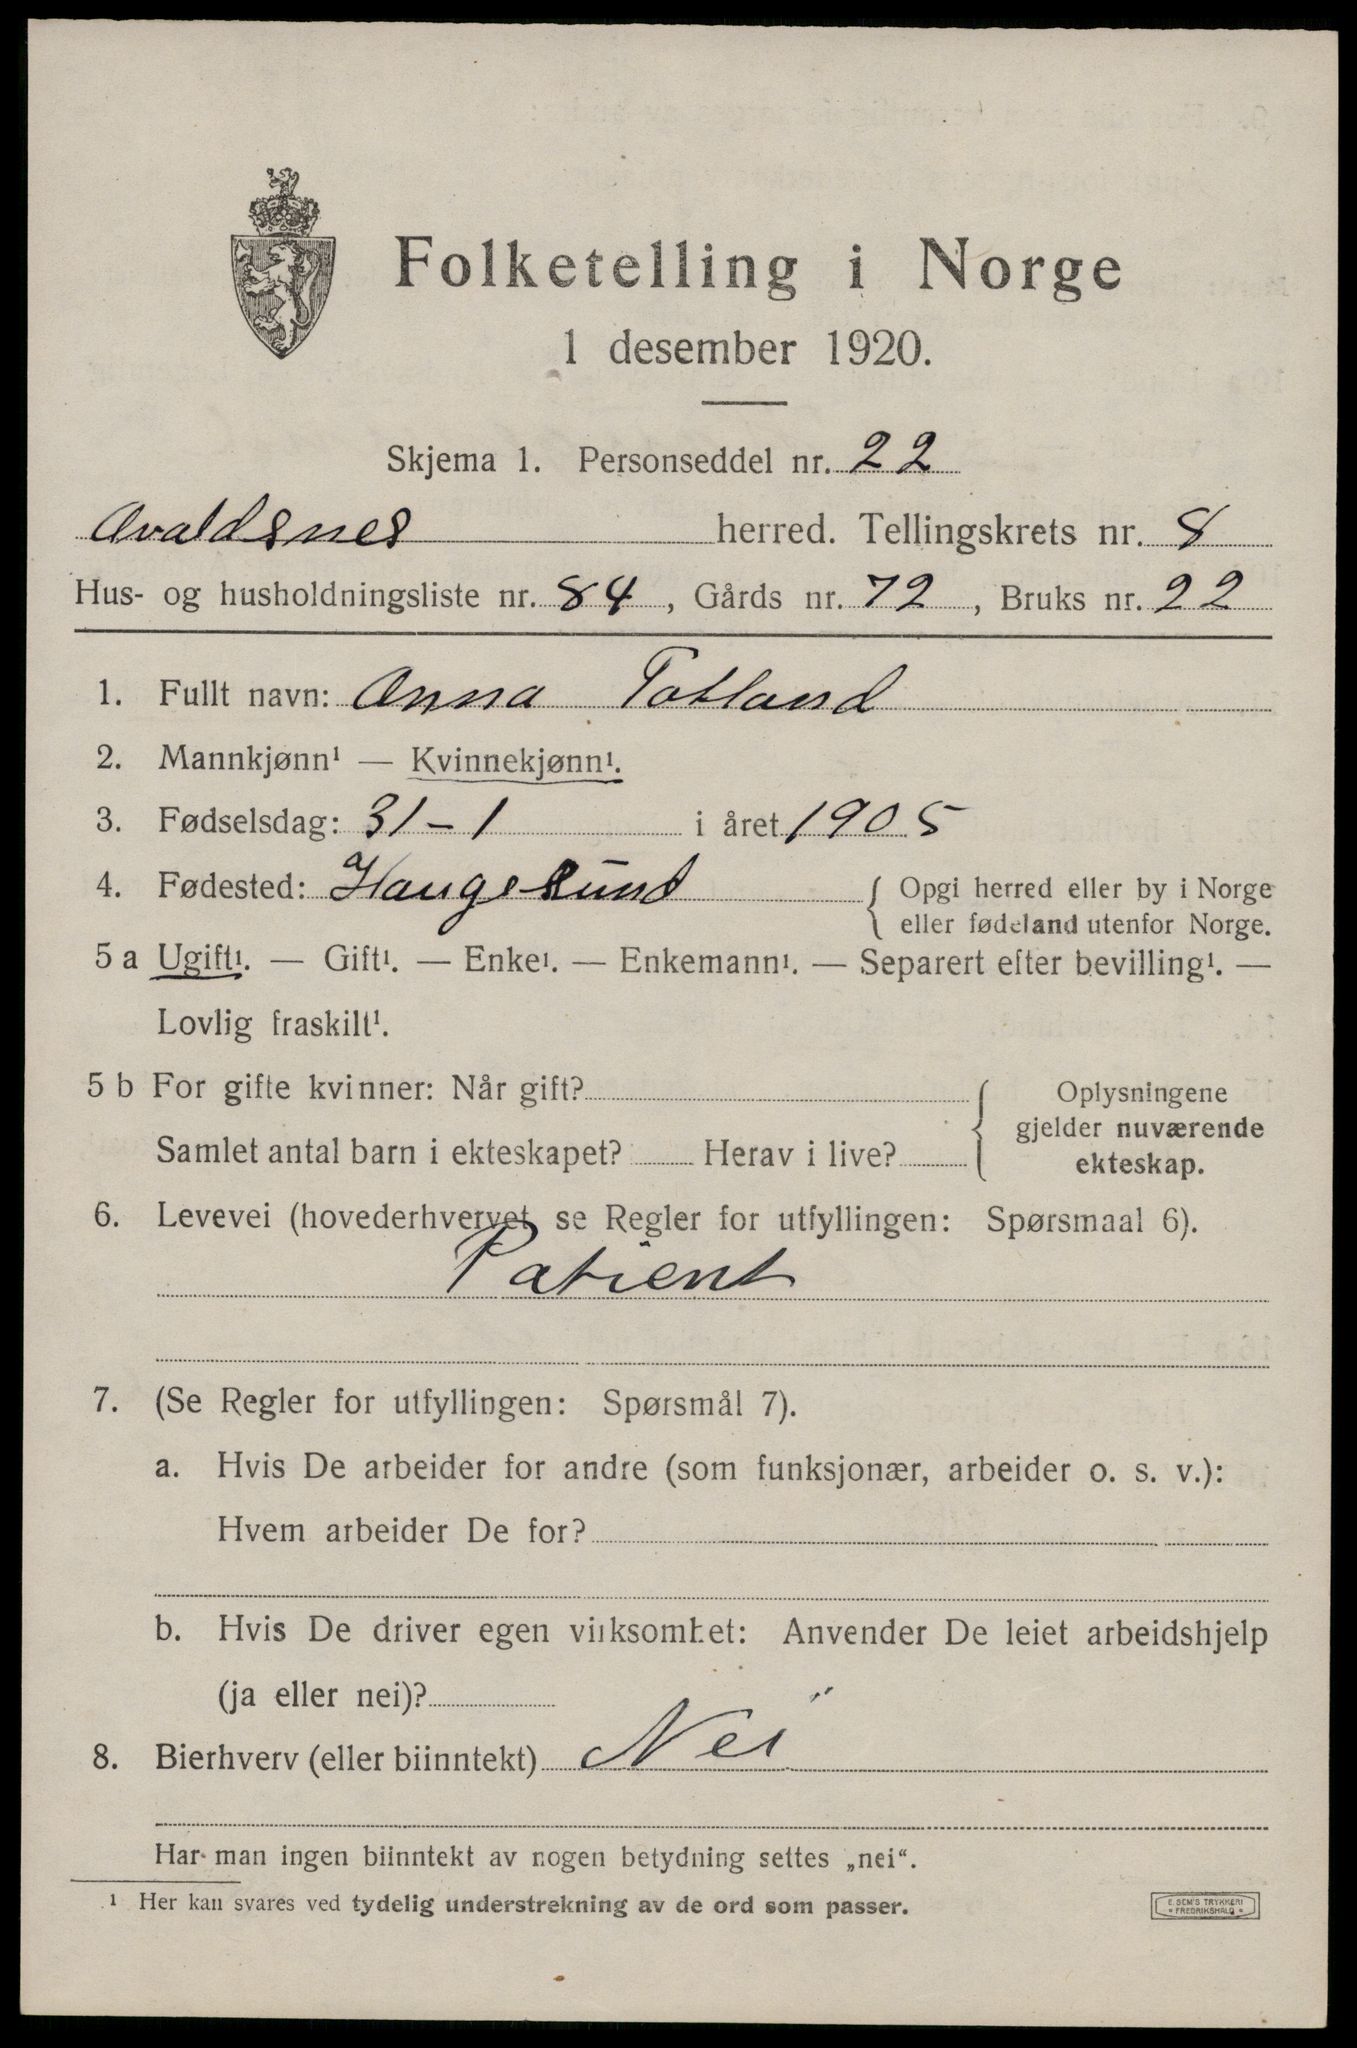 Folketelling i Norge
1 desember 1920.
Skjema 1. Personseddel nr. 22
Avaldsnes herred. Tellingskrets nr. 8
Hus- og husholdningsliste nr. 84, Gårds nr. 72, Bruks nr. 22
1. Fullt navn: Anna Totland
2. Mannkjønn¹ — Kvinnekjønn¹.
3. Fødselsdag: 31-1 i året 1905
4. Fødested: Haugesund { Opgi herred eller by i Norge
eller fødeland utenfor Norge.
5 a Ugift¹. — Gift¹. — Enke¹. — Enkemann¹. — Separert efter bevilling¹. —
Lovlig fraskilt¹.
5 b For gifte kvinner: Når gift?
Samlet antal barn i ekteskapet? Herav i live?
{ Oplysningene
gjelder nuværende
ekteskap.
6. Levevei (hovederhvervet, se Regler for utfyllingen: Spørsmaal 6).
Patient
7. (Se Regler for utfyllingen: Spørsmål 7).
a. Hvis De arbeider for andre (som funksjonær, arbeider o. s. v.):
Hvem arbeider De for?
b. Hvis De driver egen virksomhet: Anvender De leiet arbeidshjelp
(ja eller nei)?
8. Bierhverv (eller biinntekt) Nei
Har man ingen biinntekt av nogen betydning settes „nei“.
¹ Her kan svares ved tydelig understrekning av de ord som passer.
E. SEM'S TRYKKERI
* FREDRIKSHALD *